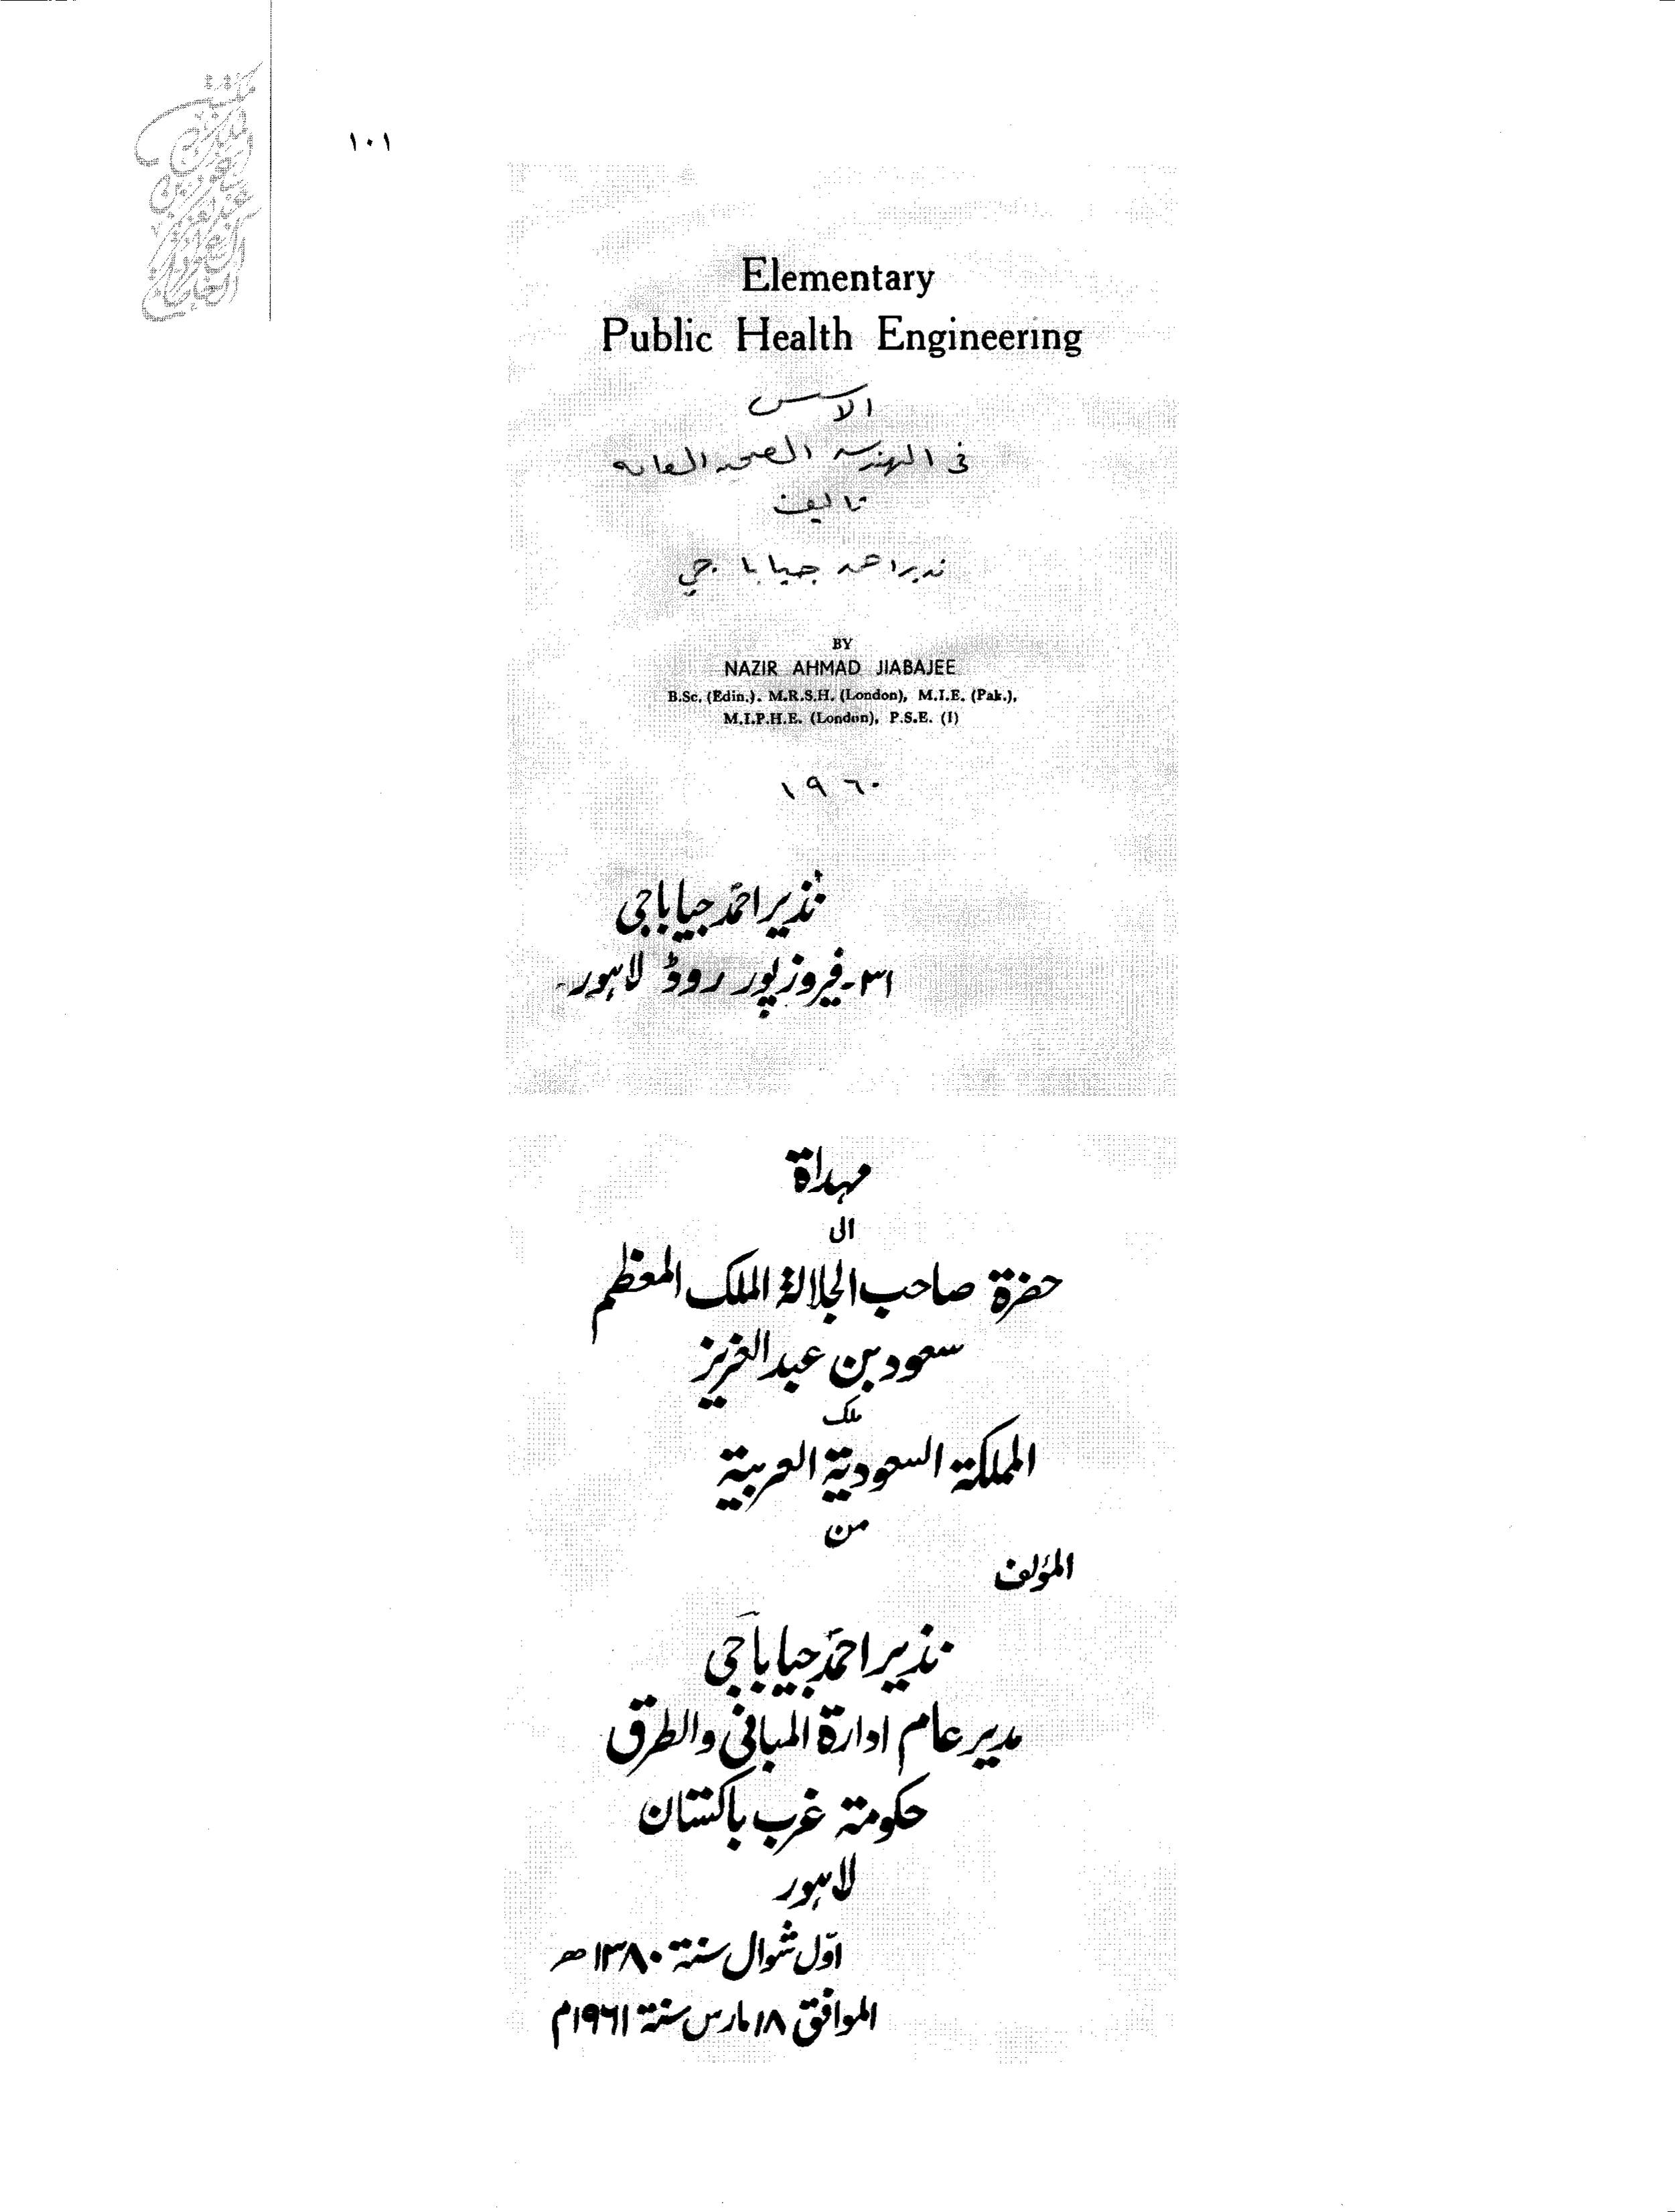 ١٠١
Elementary
Public Health Engineering
الاسس
فى الهندسه الصحيه العامه
تاليف
نذير احمد جيا باجي
BY
NAZIR AHMAD JIABAJEE
B.Sc. (Edin.). M.R.S.H. (London), M.I.E. (Pak.),
M.I.P.H.E. (London), P.S.E. (I)
١٩٦٠
نذیر احمد جیاباجی
۳۱۔فیروز پور روڈ لاہور۔
مهداة
الى
حضرة صاحب الجلالة الملك المعظم
سعود بن عبد العزيز
ملك
المملكة السعودية العربية
من
المؤلف
نذير احمد جياباجى
مدير عام ادارة المبانى والطرق
حكومة غرب باكستان
لاہور
اوّل شوال سنة ١٣٨٠ھ
الموافق ١٨ مارس سنة ١٩٦١م